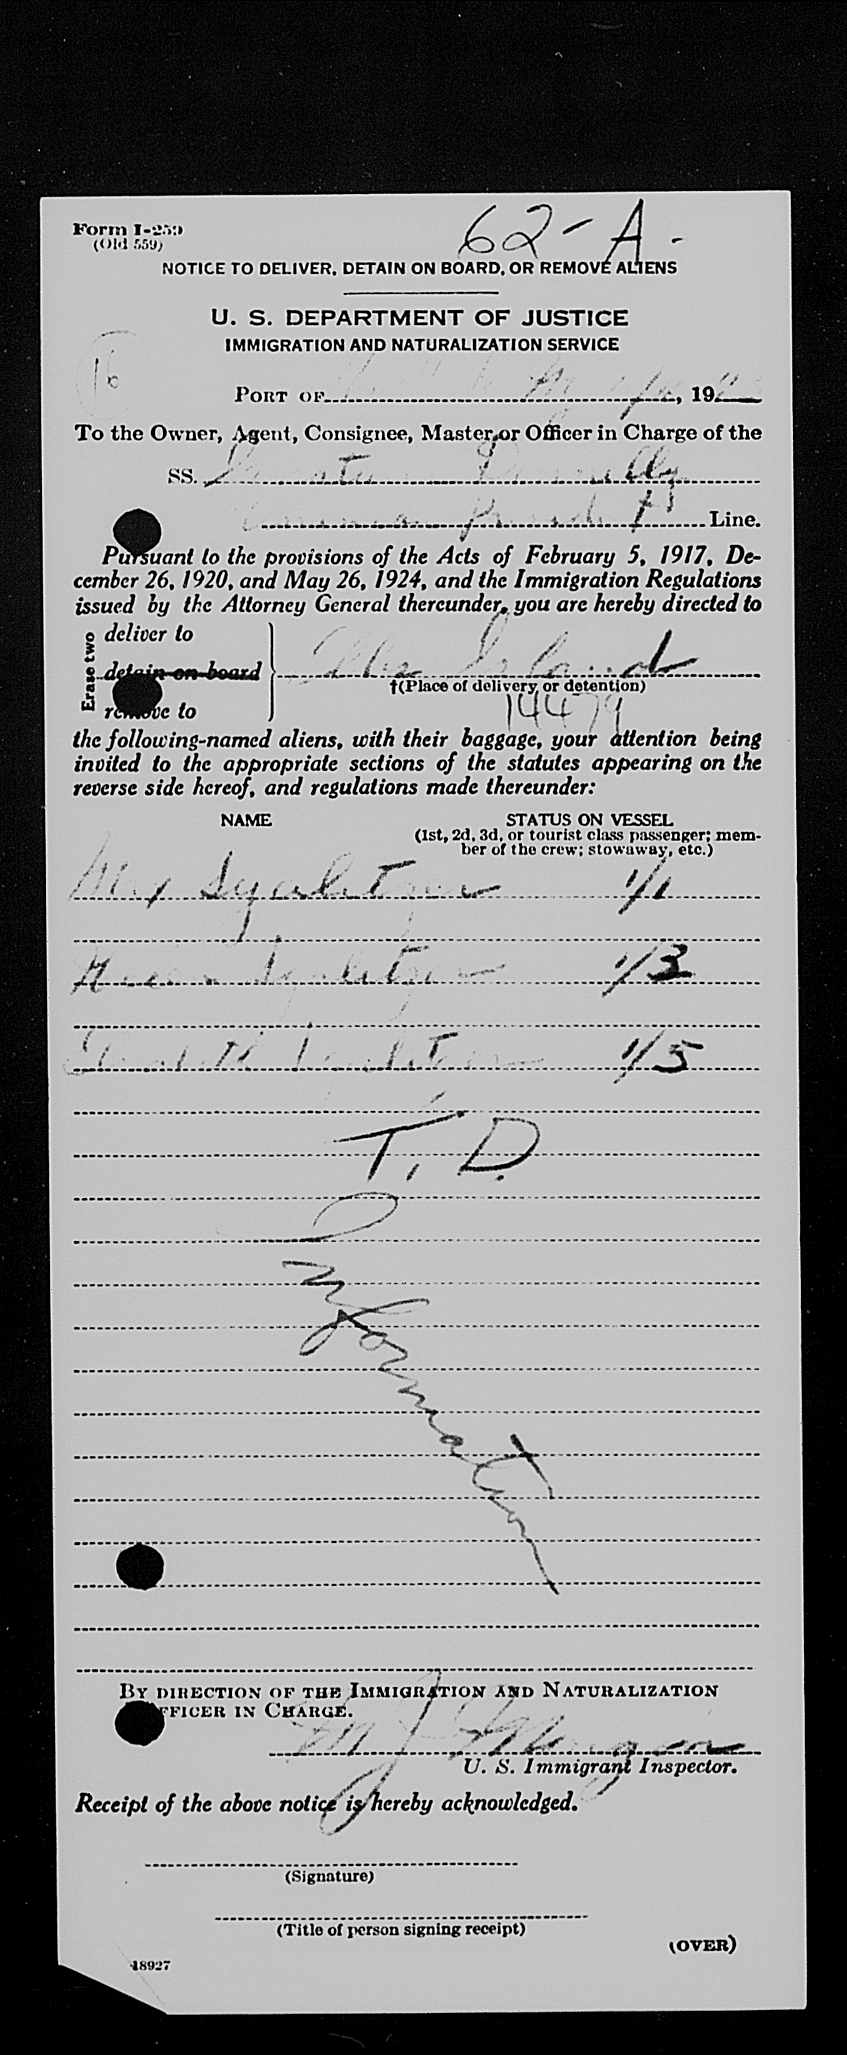 Form I-259
(Old 559)
62-A-
NOTICE TO DELIVER, DETAIN ON BOARD, OR REMOVE ALIENS
U. S. DEPARTMENT OF JUSTICE
IMMIGRATION AND NATURALIZATION SERVICE
16
PORT OF , 19
To the Owner, Agent, Consignee, Master, or Officer in Charge of the
SS.
Line.
Pursuant to the provisions of the Acts of February 5, 1917, De-
cember 26, 1920, and May 26, 1924, and the Immigration Regulations
issued by the Attorney General thereunder, you are hereby directed to
Erase two
deliver to
detain on board
remove to
Ellis Island
†(Place of delivery or detention)
14479
the following-named aliens, with their baggage, your attention being
invited to the appropriate sections of the statutes appearing on the
reverse side hereof, and regulations made thereunder:
NAME STATUS ON VESSEL
(1st, 2d, 3d, or tourist class passenger; mem-
ber of the crew; stowaway, etc.)
1/1
1/3
1/5
T. D.
Information
BY DIRECTION OF THE IMMIGRATION AND NATURALIZATION
OFFICER IN CHARGE.
U. S. Immigrant Inspector.
Receipt of the above notice is hereby acknowledged.
(Signature)
(Title of person signing receipt)
(OVER)
18927